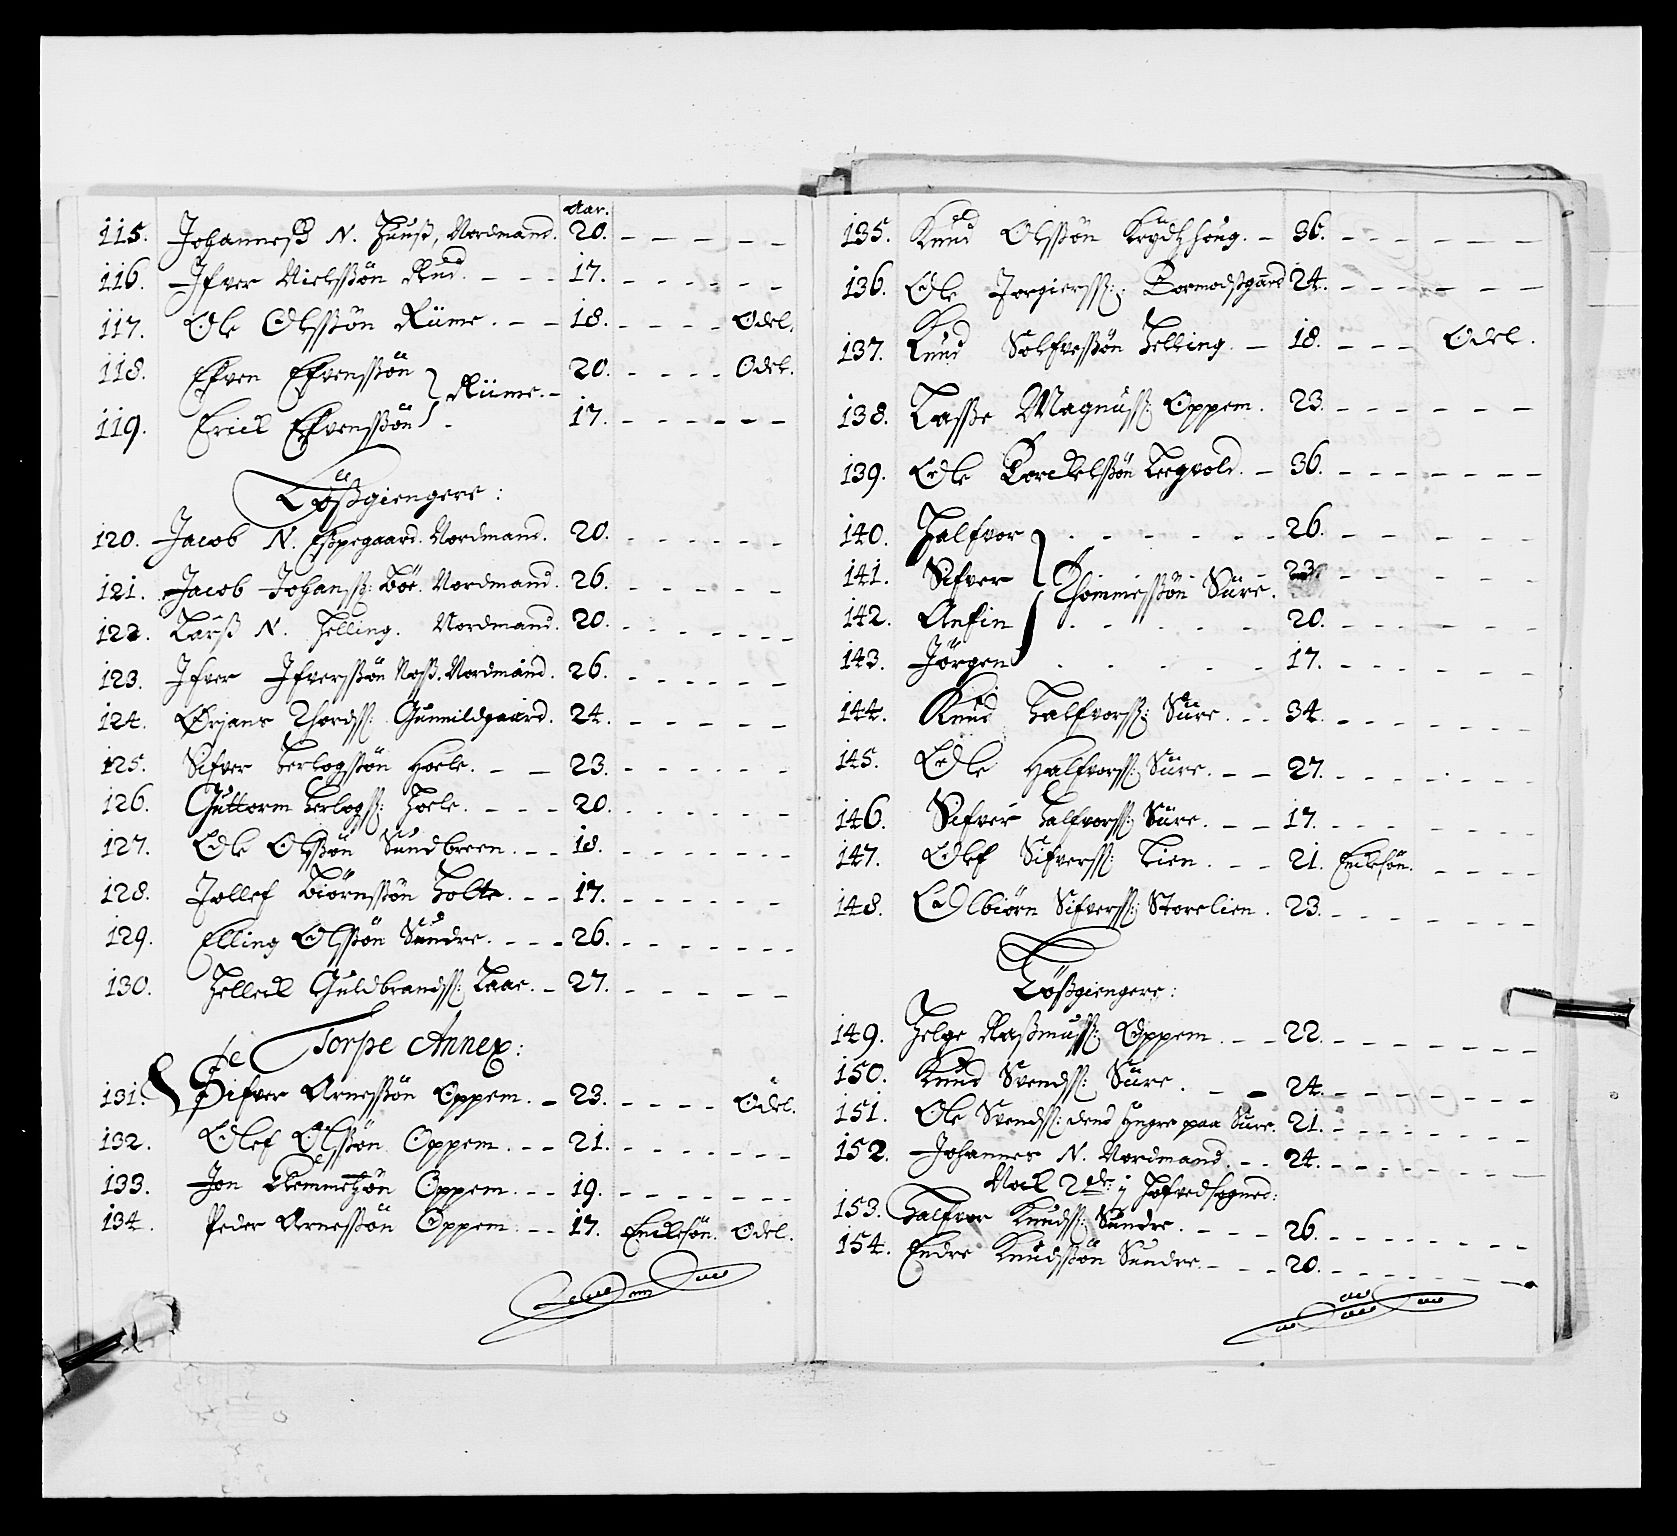 Aar.
115. Johanness N. Huuss, Nordmand. 20. - - - - -
116. Ifver Nielssøn Rud. - - - 17. - - - - - -
117. Ole Olssøn Rüme. - - 18. - - - - Odel.
118. Efven Efvenssøn 20. - - - - Odel.
} Rüme. -
119. Erick Efvenssøn - 17. - - - - - -
Løssgiengere:
120. Jacob N. Esspegaard. Nordmand. 20. - - - - - -
121. Jacob Johanss: Bøe. Nordmand. 26. - - - - - -
122. Larss N. Helling. Nordmand. 20. - - - - - - -
123. Ifver Ifverssøn Noss. Nordmand. 26. - - - - - -
124. Ørjans Thordss: Gunnildgaard. 24. - - - - -
125. Sifver Herlogssøn Hoele. - - 23. - - - - - -
126. Guttorm Herlogss: Hoele. - - - 20. - - - - - -
127. Ole Olssøn Sundbreen. - - 18. - - - - - - -
128. Tollef Biørnssøn Holte. - - 17. - - - - - -
129. Elling Olssøn Sundre. - - - 26. - - - - - - -
130. Helleck Guldbrandss: Laae. - 27. - - - - -
Torpe Annex:
131. Sifver Arnessøn Oppem. - 23. - - - - Odel.
132. Olef Olssøn Oppem. - - 21. - - - - - - -
133. Jon Clemmetzøn Oppem. - - 19. - - - - - - -
134. Peder Arnessøn Oppem. - - 17. Enckesøn. Odel.
135. Knud Olssøn Krydtzhoug. - 36. - - - - - -
136. Ole Torgierss: Tormodssgaard 24. - - - - - -
137. Knud Solfvessøn Helling. - 18. - - - Odel.
138. Lasse Magnuss: Oppem. 23. - - - - - -
139. Ole Torckelssøn Leegvold. - 36. - - - - - -
140. Halfvor - - - - - - 26. - - - - -
141. Sifver } Thommessøn Süre. 23. - - - - -
142. Anfin - - - - - 20. - - - - - -
143. Jørgen - - - - - 17. - - - - - -
144. Knud Halfvorss: Süre. - - 34. - - - - - -
145. Ole Halfvorss: Süre. - - 27. - - - - - -
146. Sifver Halfvorss: Süre. - - 17. - - - - - -
147. Olef Sifverss: Lien. - - 21. Enckesøn. - - - -
148. Olbiørn Sifverss: Storelien. 23. - - - - - -
Løssgiengere:
149. Helge Rassmuss: Oppem. - - 22. - - - - - - -
150. Knud Svendss: Süre. - - 24. - - - - - - -
151. Ole Svendss: dend yngre paa Süre. 21. - - - - - - -
152. Johannes N. Nordmand. - - 24. - - - - - -
Nock 2de: j Hofvedsogned:
153. Halfvor Knudss: Sundre. - - - 26. - - - - - - -
154. Endre Knudssøn Sundre. - - - 20. - - - - - - -